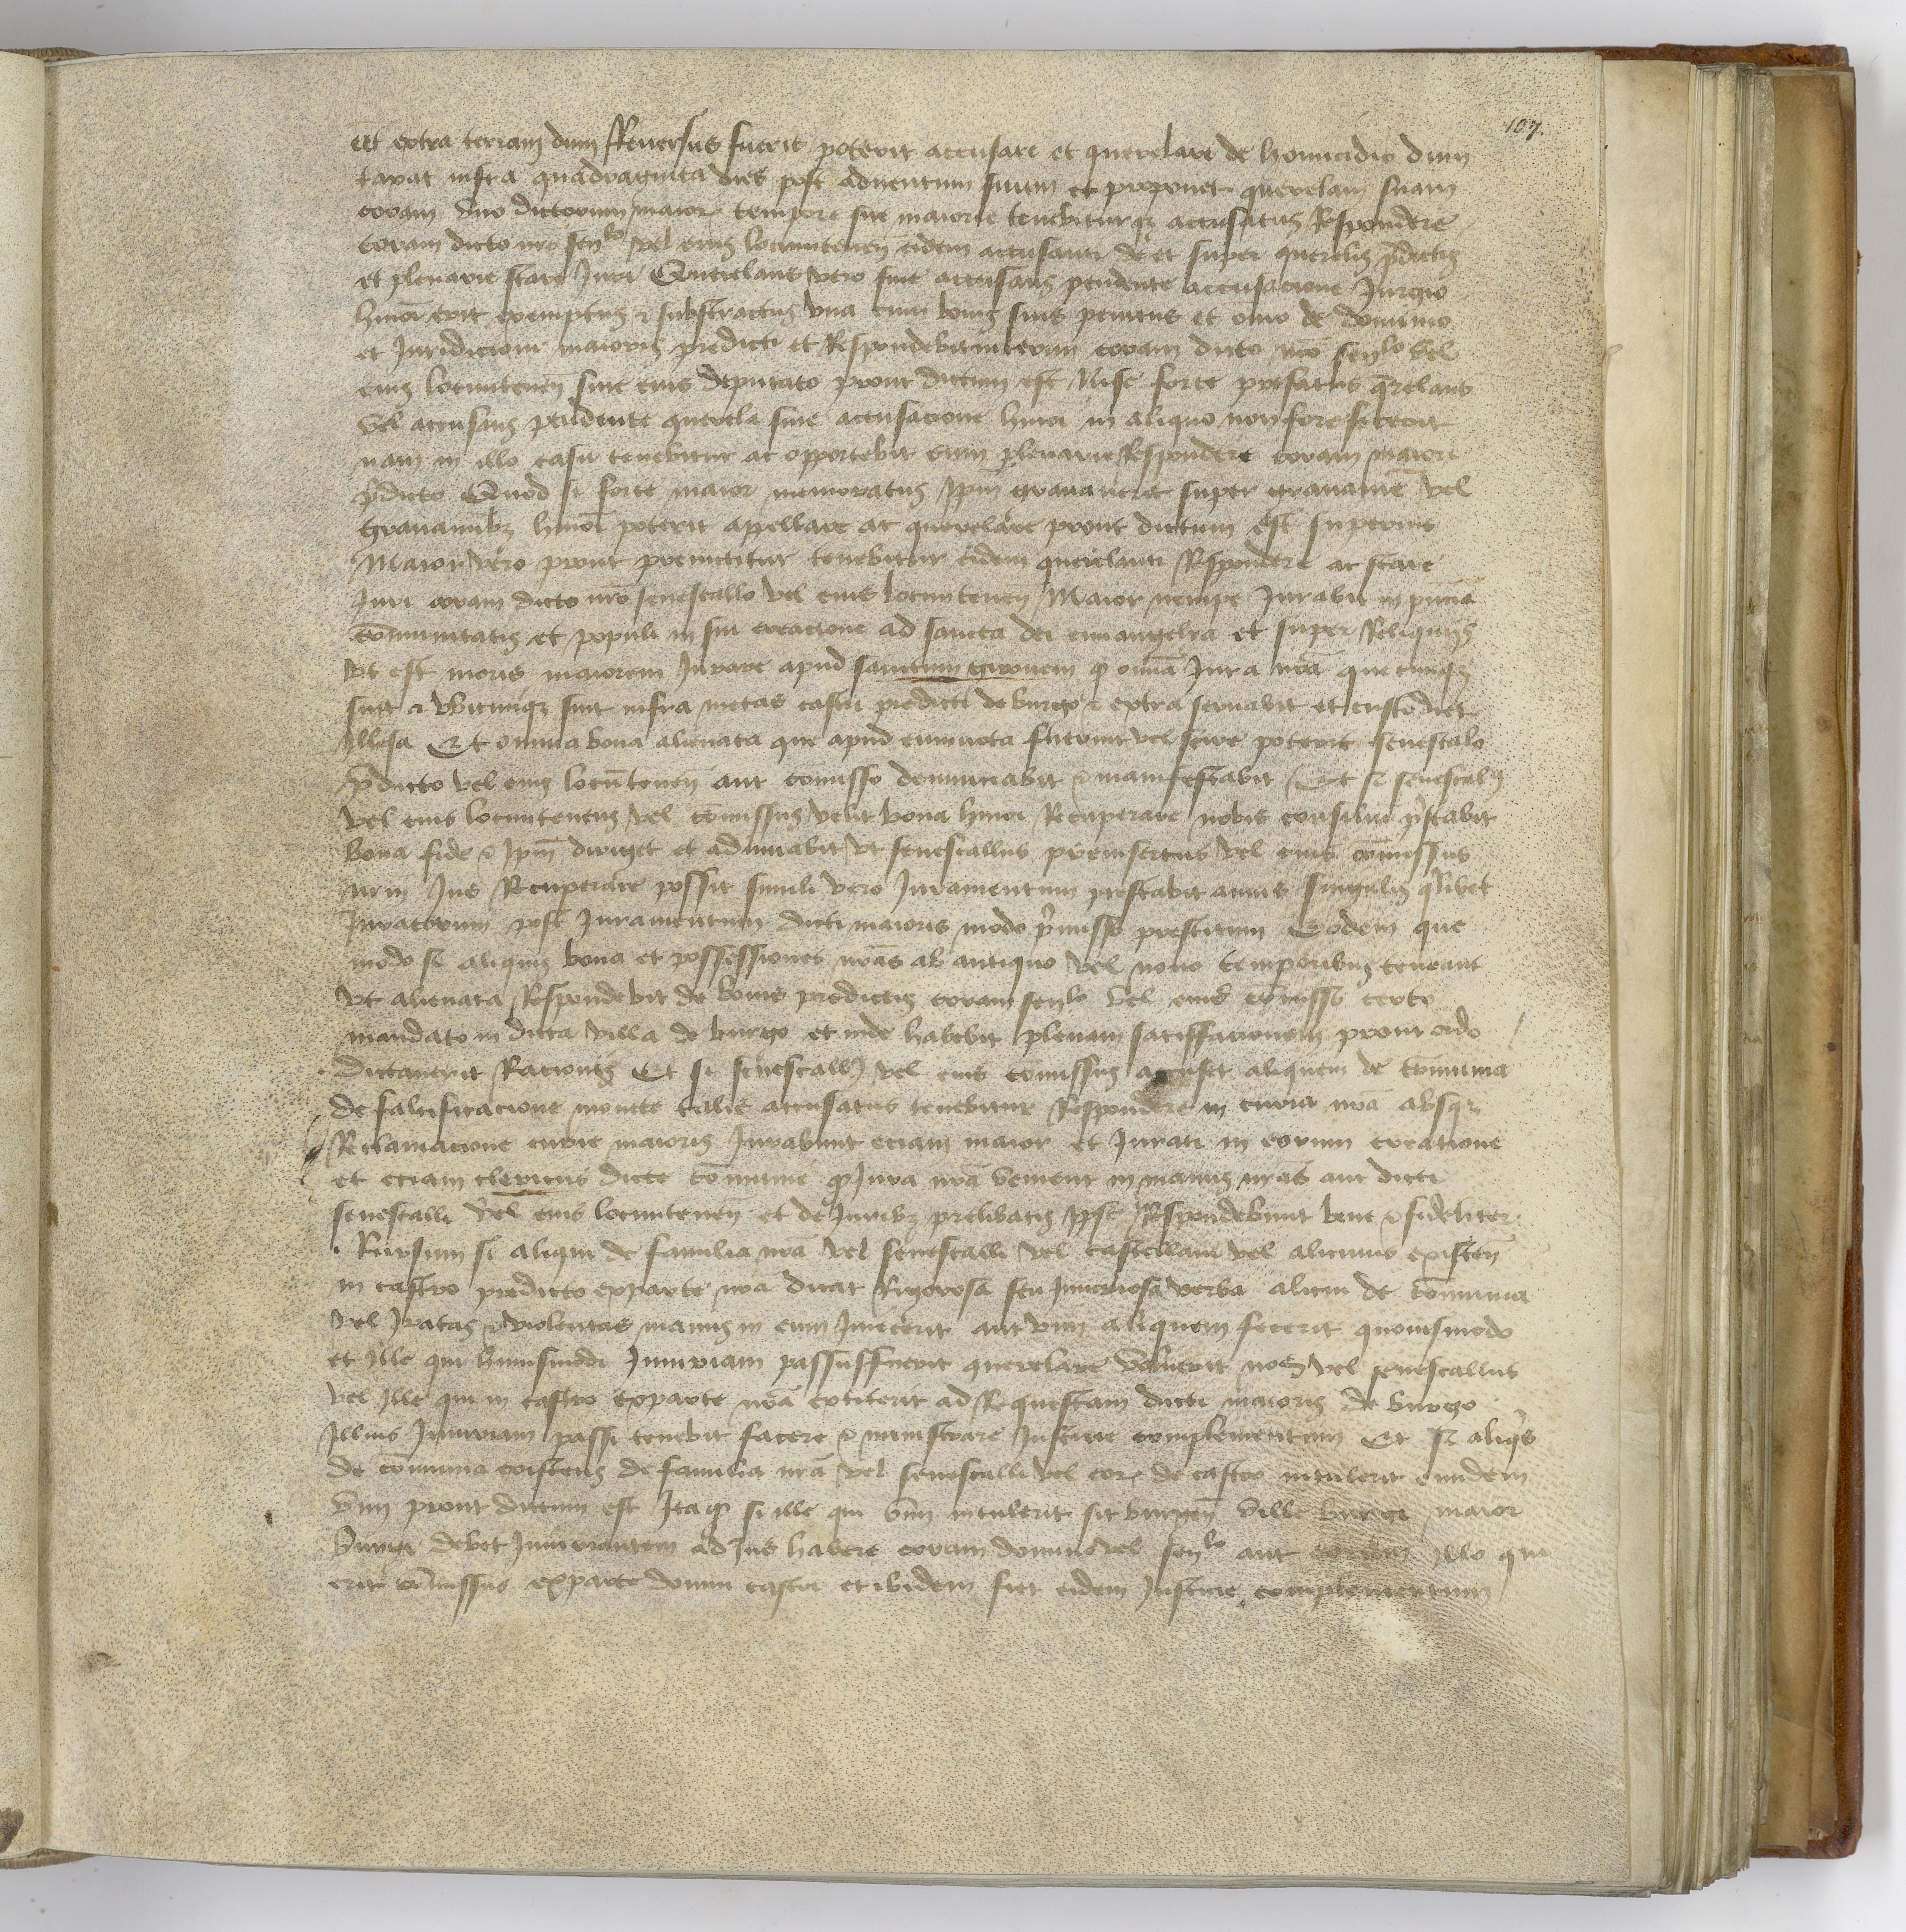 107.
Et extra terram dum Reversus fuerit poterit accusare et querelare de homicidio dum
taxat infra quadraginta dies post adventum suum et proponet querelam suam
coram uno dictorum maior tempore sue maiorie tenebiturq accusatus Respondere
coram dicto nro senlo vel eius locumtenen eidem accusanti de et super querelis pdictis
et plenarie stare Juri Querelans vero sive accusans pendente accusacione Jurgio
hmoi erit exemptus & substractus una cum bonis suis penitus et omo de dominio
et Juridicioni maioris predicti et Respondebit coram dicto nro senlo vel
eius locumtenen sive eius deputato prout dictum est Nisi forte prefatus qrelans
vel accusans pendente querela sive accusacione hmoi in aliquo non forefecerit
nam in illo casu tenebitur ac opportebit eum plenarie Respondere coram maiore
pdicto Quod si forte maior memoratus Ipm gravaverit super gravamie vel
gravaminibz hmoi poterit appellare ac querelare prout dictum est superius
Maior vero prout premittitur tenebitur eidem querelanti Respondere ac stare
Juri coram dicto nro senescallo vel eius locumtenen Maior nempe Jurabit in pncia
comunitatis et populi in sui creacione ad sancta dei euuangelia et super Reliquiis
ut est moris maiorem Jurare apud sanctum gironem q omia Jura nra que cunqz
sunt & ubicunqz sint infra metas castri predicti de burgo & extra servabit et custodiet
Illesa Et omnia bona alienata que apud eum nota fuerint vel scire poterit senescalo
pdicto vel eius locutenen aut comisso denunciabit & manifestabit Et si senescals
vel eius locumtenens vel comissus velit bona hmoi Recuperare nobis consiliu pstabit
bona fide & Ipm diriget et adiuvabit ut senescallus preinsertus vel eius comissus
nrm Jus Recuperare possit simili vero Juramentum prestabit annis singulis qlibet
Juratorum post Juramentum dicti maioris modo pmisso prestitum Eodem que
modo si aliquis bona et possessiones nras ab antiquo vel novo temporibus teneant
ut alienata Respondebit de bonis predictis coram senlo vel eius comisso certo
mandato in dicta villa de burgo et inde habebit plenam satisfacionem prout ordo
dictaverit Racionis Et si senescall vel eius comissus accuset aliquem de comunia
de falcificacione monete talis accusatus tenebitur Respondere in curia nra absqz
Reclamacione curie maioris Jurabunt eciam maior et Jurati in eorum creatione
et eciam clericus dicte comunie q Jura nra venient in manus nras aut dicti
senescalli vel eius locumtenen et de Juribz prelibatis Ipsi Respondebunt bene & fideliter
Rursum si aliqui de familia nra vel senescalli vel castellani vel alicuius existen
in castro predicto ex parte nra dicat Rigorosa seu Iniuriosa verba alicui de comunia
vel Iratas & violentas manus in eum Iniecerit aut vim aliquam fecerit quovismodo
et Ille qui huiusmodi Iniuriam passus fuerit querelare voluerit nos vel senescallus
vel Ille qui in castro ex parte nra extiterit ad Requestam dicti maioris de burgo
Illius Iniuriam passi tenebit facere & ministrare Justicie complementum Et si aliqs
de comunia existens de familia nra vel senescalli vel eor de castro intulerit eandem
vim prout dictum est Ita q si ille qui vim intulerit sit burgen ville burgi maior
burgi debet Iniuriantem ad Jus habere coram domino vel senlo aut coram Illo qui
erit comissus ex parte domini castri et ibidem fiet eidem Justicie complementum